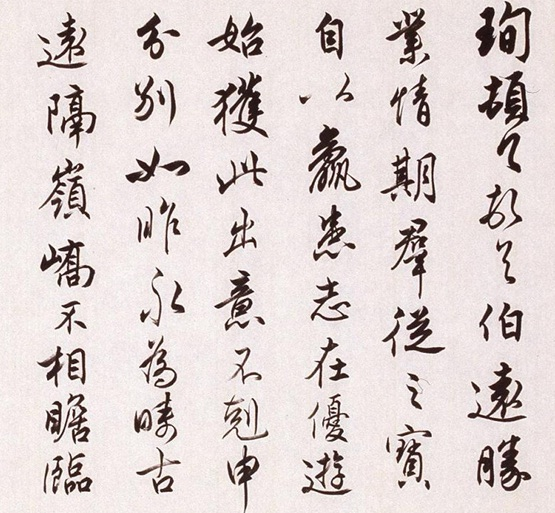 珣頓首頓首伯遠勝
業情期羣從之寶
自以羸患志在優遊
始獲此出意不剋申
分别如昨永為疇古
遠隔嶺嶠不相瞻臨